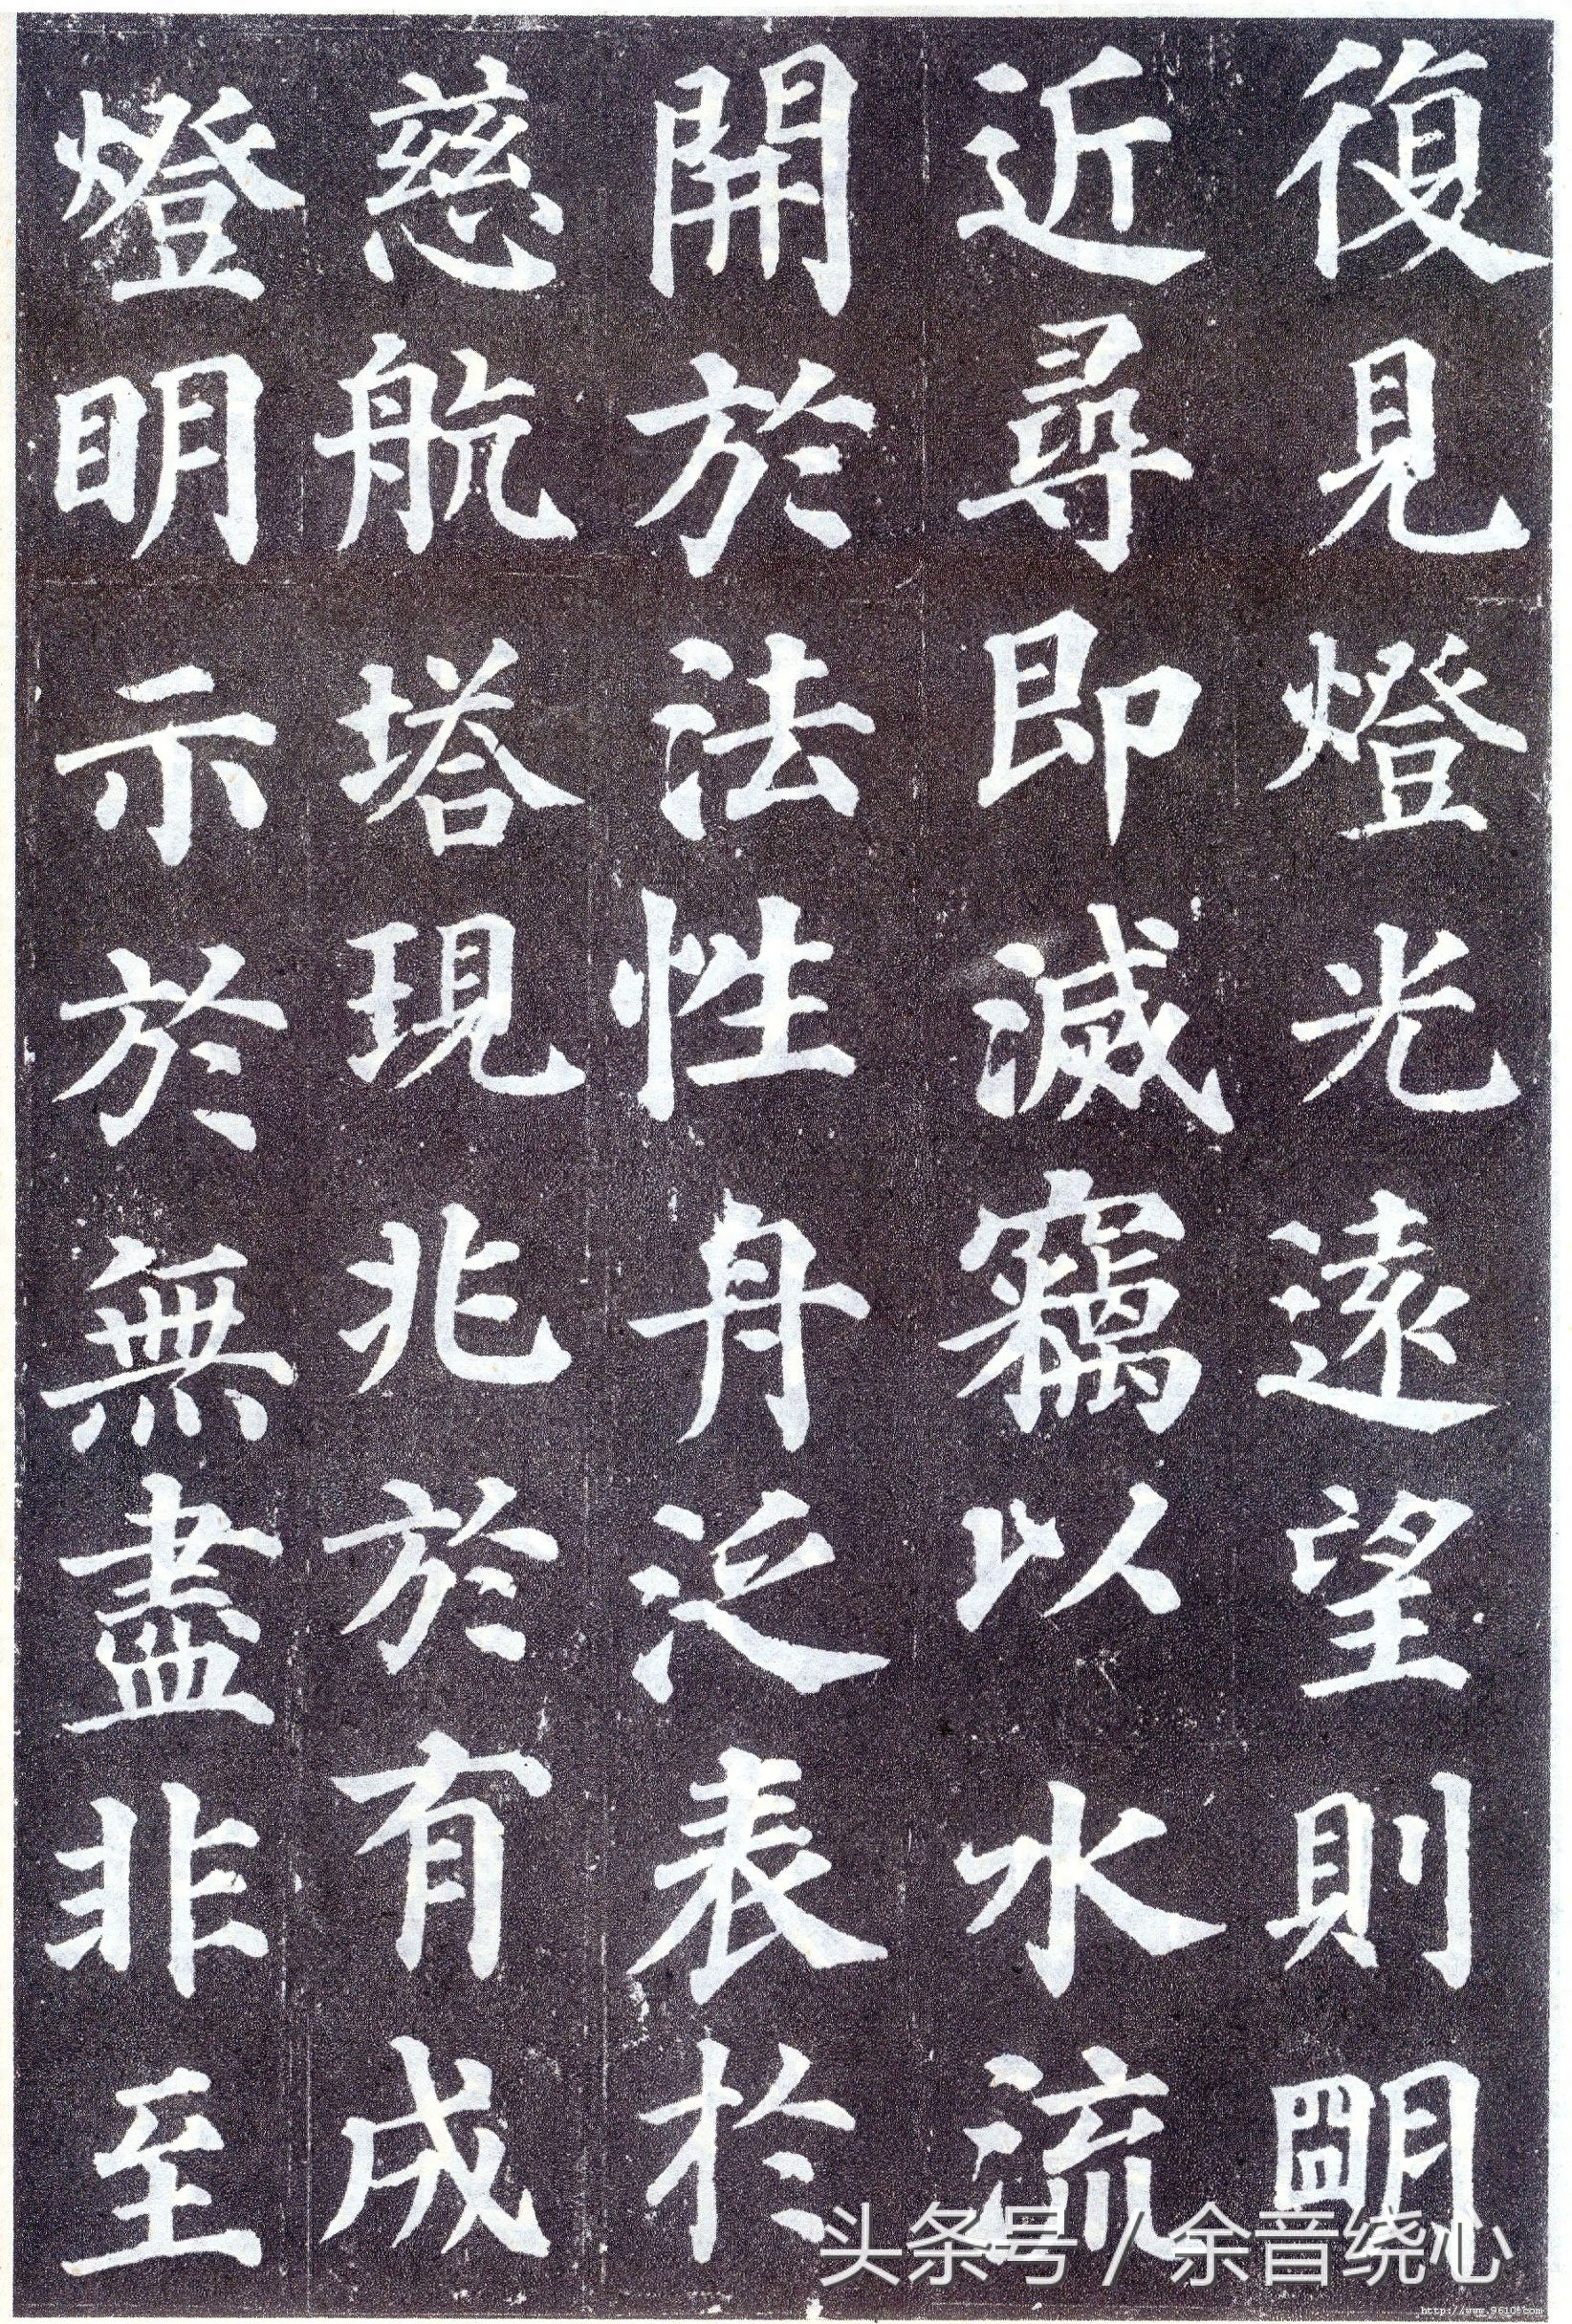 復見燈光遠望則朙
近尋即滅竊以水流
開於法性舟泛表於
慈航塔現兆於有成
燈明示於無盡非至
头条号 / 余音绕心
http://www.9610.com